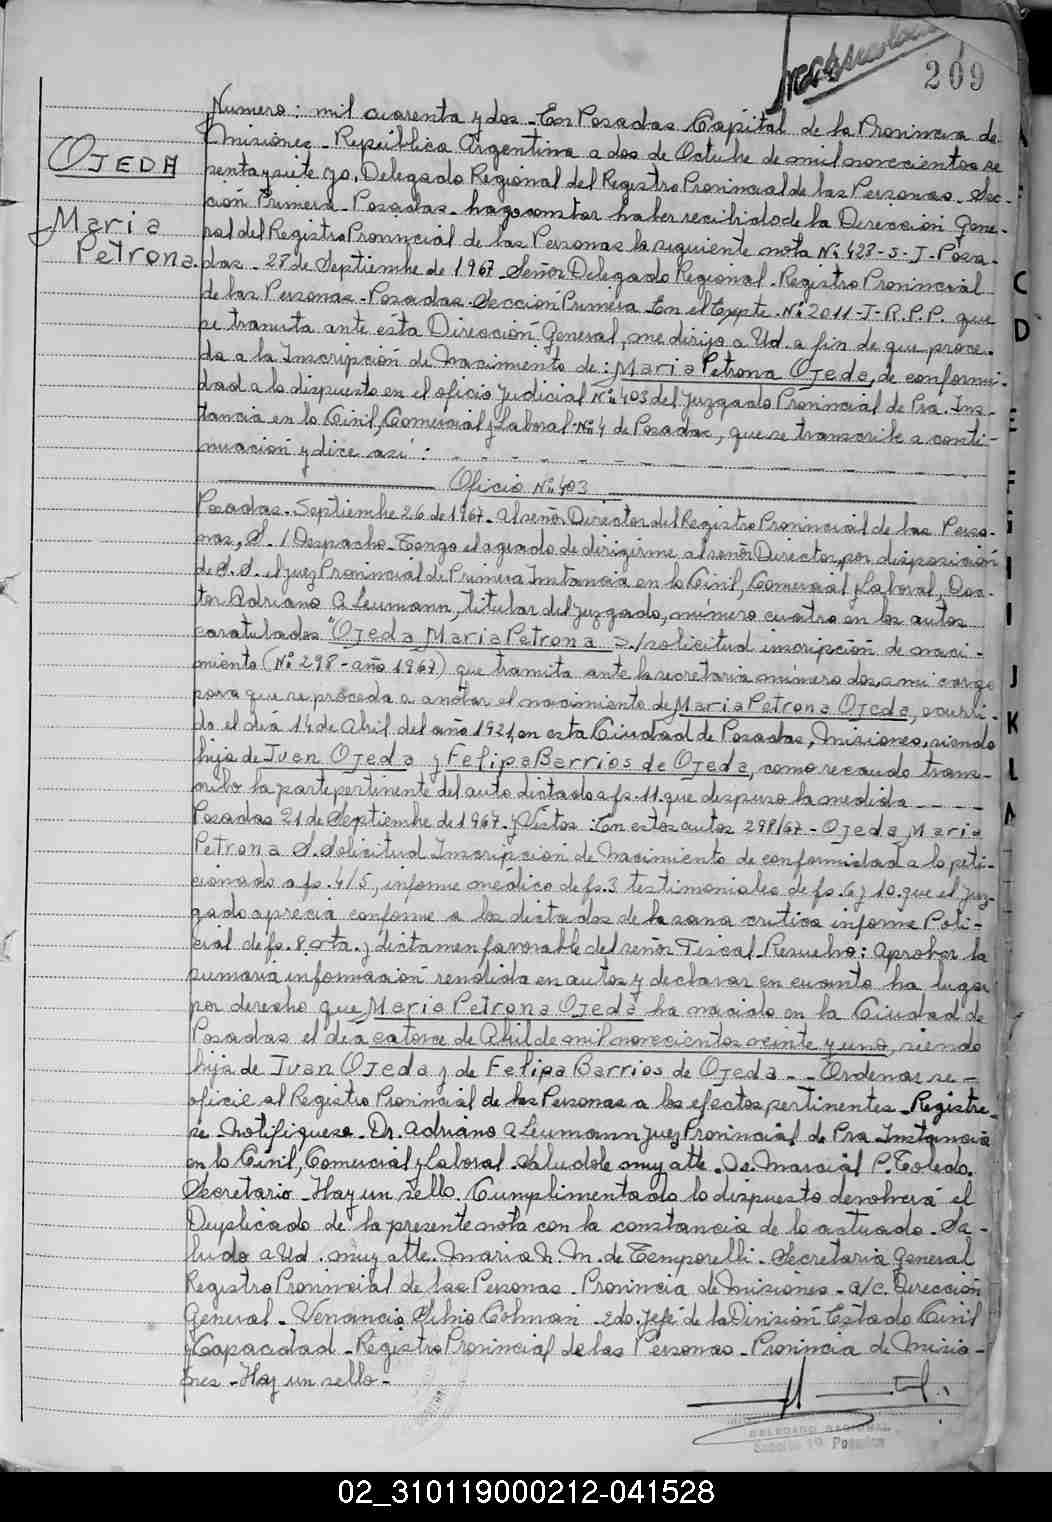 209
OJEDA
Maria
Petrona.
Numero: mil cuarenta y dos - En Posadas Capital de la Provincia de
Misiones - República Argentina a dos de Octubre de mil novecientos se
senta y siete yo, Delegado Regional del Registro Provincial de las Personas - Sec-
ción Primera - Posadas - hago constar haber recibido de la Dirección Gene-
ral del Registro Provincial de las Personas la siguiente nota Nº 428-S-J-Posa-
das - 28 de Septiembre de 1967 - Señor Delegado Regional - Registro Provincial
de las Personas - Posadas - Sección Primera - En el Expte. Nº 2011-J-R.P.P. que
se tramita ante ésta Dirección General, me dirijo a Ud. a fin de que proce-
da a la Inscripción de Nacimiento de: Maria Petrona Ojeda, de conformi-
dad a lo dispuesto en el oficio Judicial Nº 403 del Juzgado Provincial de Pra. Ins-
tancia en lo Civil, Comercial y Laboral Nº 4 de Posadas, que se transcribe a conti-
nuación y dice así:
Oficio Nº 403
Posadas - Septiembre 26 de 1967 - Al señor Director del Registro Provincial de las Perso-
nas, S. / Despacho - Tengo el agrado de dirigirme al señor Director, por disposición
de S.S. el Juez Provincial de Primera Instancia en lo Civil, Comercial y Laboral, Doc-
tor Adriano A. Leumann, titular del Juzgado, número cuatro en los autos
caratulados "Ojeda Maria Petrona S./solicitud inscripción de naci-
miento (Nº 298 - año 1967) que tramita ante la secretaria número dos, a mi cargo
para que se proceda a anotar el nacimiento de Maria Petrona Ojeda, ocurri-
do el día 14 de Abril del año 1921, en esta Ciudad de Posadas, Misiones, siendo
hija de Juan Ojeda y Felipa Barrios de Ojeda, como recaudo trans-
cribo la parte pertinente del auto dictado a fs. 11. que dispuso la medida
Posadas 21 de Septiembre de 1967. Y Vistos: En estos autos 298/67 - Ojeda Maria
Petrona S. Solicitud Inscripción de Nacimiento de conformidad a lo peti-
cionado a fs. 4/5, informe médico de fs. 3 testimoniales de fs. 6 y 10. que el Juz-
gado aprecia conforme a los dictados de la sana critica informe Poli-
cial de fs. 8 vta. y dictamen favorable del señor Fiscal - Resuelvo: Aprobar la
sumaria información rendida en autos y declarar en cuanto ha lugar
por derecho que Maria Petrona Ojeda ha nacido en la Ciudad de
Posadas el día catorce de Abril de mil novecientos veinte y uno, siendo
hija de Juan Ojeda y de Felipa Barrios de Ojeda - - Ordenar se -
oficie al Registro Provincial de las Personas a los efectos pertinentes - Registre-
se - Notifiquese - Dr. Adriano A Leumann Juez Provincial de Pra Instancia
en lo Civil, Comercial y Laboral. Saludole muy atte. Dr. Marcial P. Toledo.
Secretario - Hay un sello. Cumplimentado lo dispuesto devolverá el
Duplicado de la presente nota con la constancia de lo actuado - Sa-
ludo a Ud. muy atte. Maria N. M. de Temporelli - Secretaria General
Registro Provincial de las Personas - Provincia de Misiones - a/c. Dirección
General - Venancio Silvio Colman - 2do. Jefe de la División Estado Civil
y Capacidad - Registro Provincial de las Personas - Provincia de Misio-
nes - Hay un sello -
DELEGADO REGIONAL
Posadas
C
D
E
F
G
I
J
K
L
02_310119000212-041528